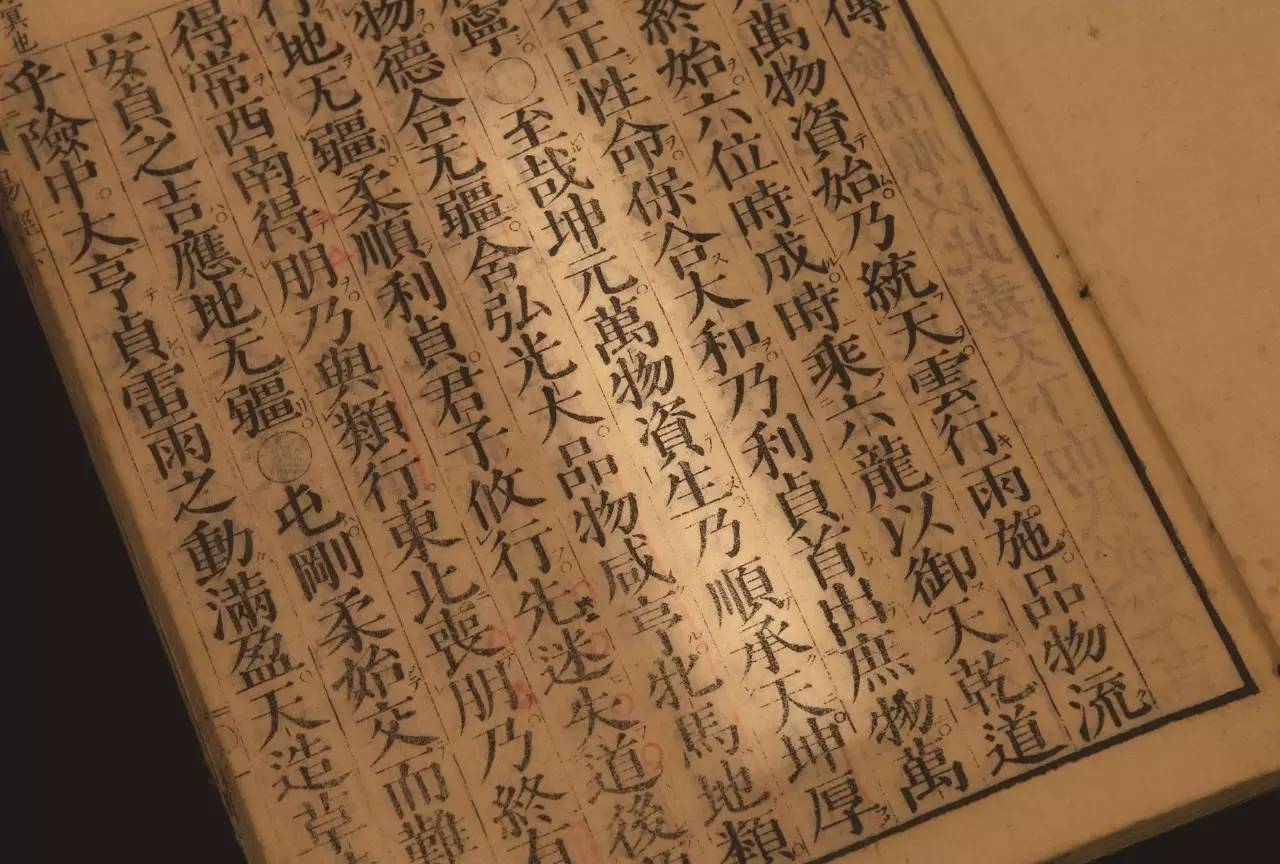 傳
萬物資始乃統天雲行雨施品物流
終始六位時成時乘六龍以御天乾道
各正性命保合大和乃利貞首出庶物萬
寧○至哉坤元萬物資生乃順承天坤厚
物德合无疆含弘光大品物咸亨牝馬地類
行地无疆柔順利貞君子攸行先迷失道後
得常西南得朋乃與類行東北喪朋乃終有
安貞之吉應地无疆○屯剛柔始交而難
乎險中大亨貞雷雨之動滿盈天造草